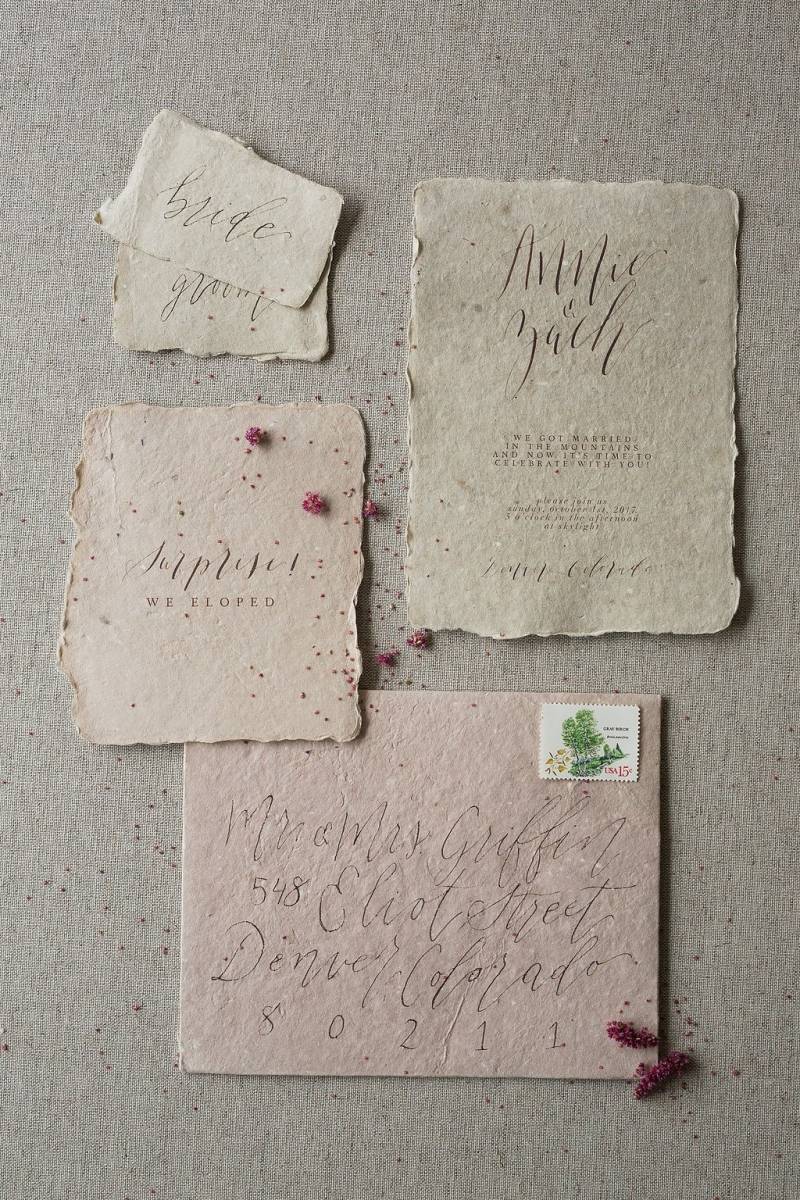 bride
groom
Annie
&
Zach
WE GOT MARRIED
IN THE MOUNTAINS
AND NOW IT'S TIME TO
CELEBRATE WITH YOU!
please join us
sunday, october 1st, 2017
5 o'clock in the afternoon
at skylight
Denver Colorado
surprise!
WE ELOPED
GRAY BIRCH
USA 15c
Mr & Mrs Griffin
548 Eliot Street
Denver Colorado
80211